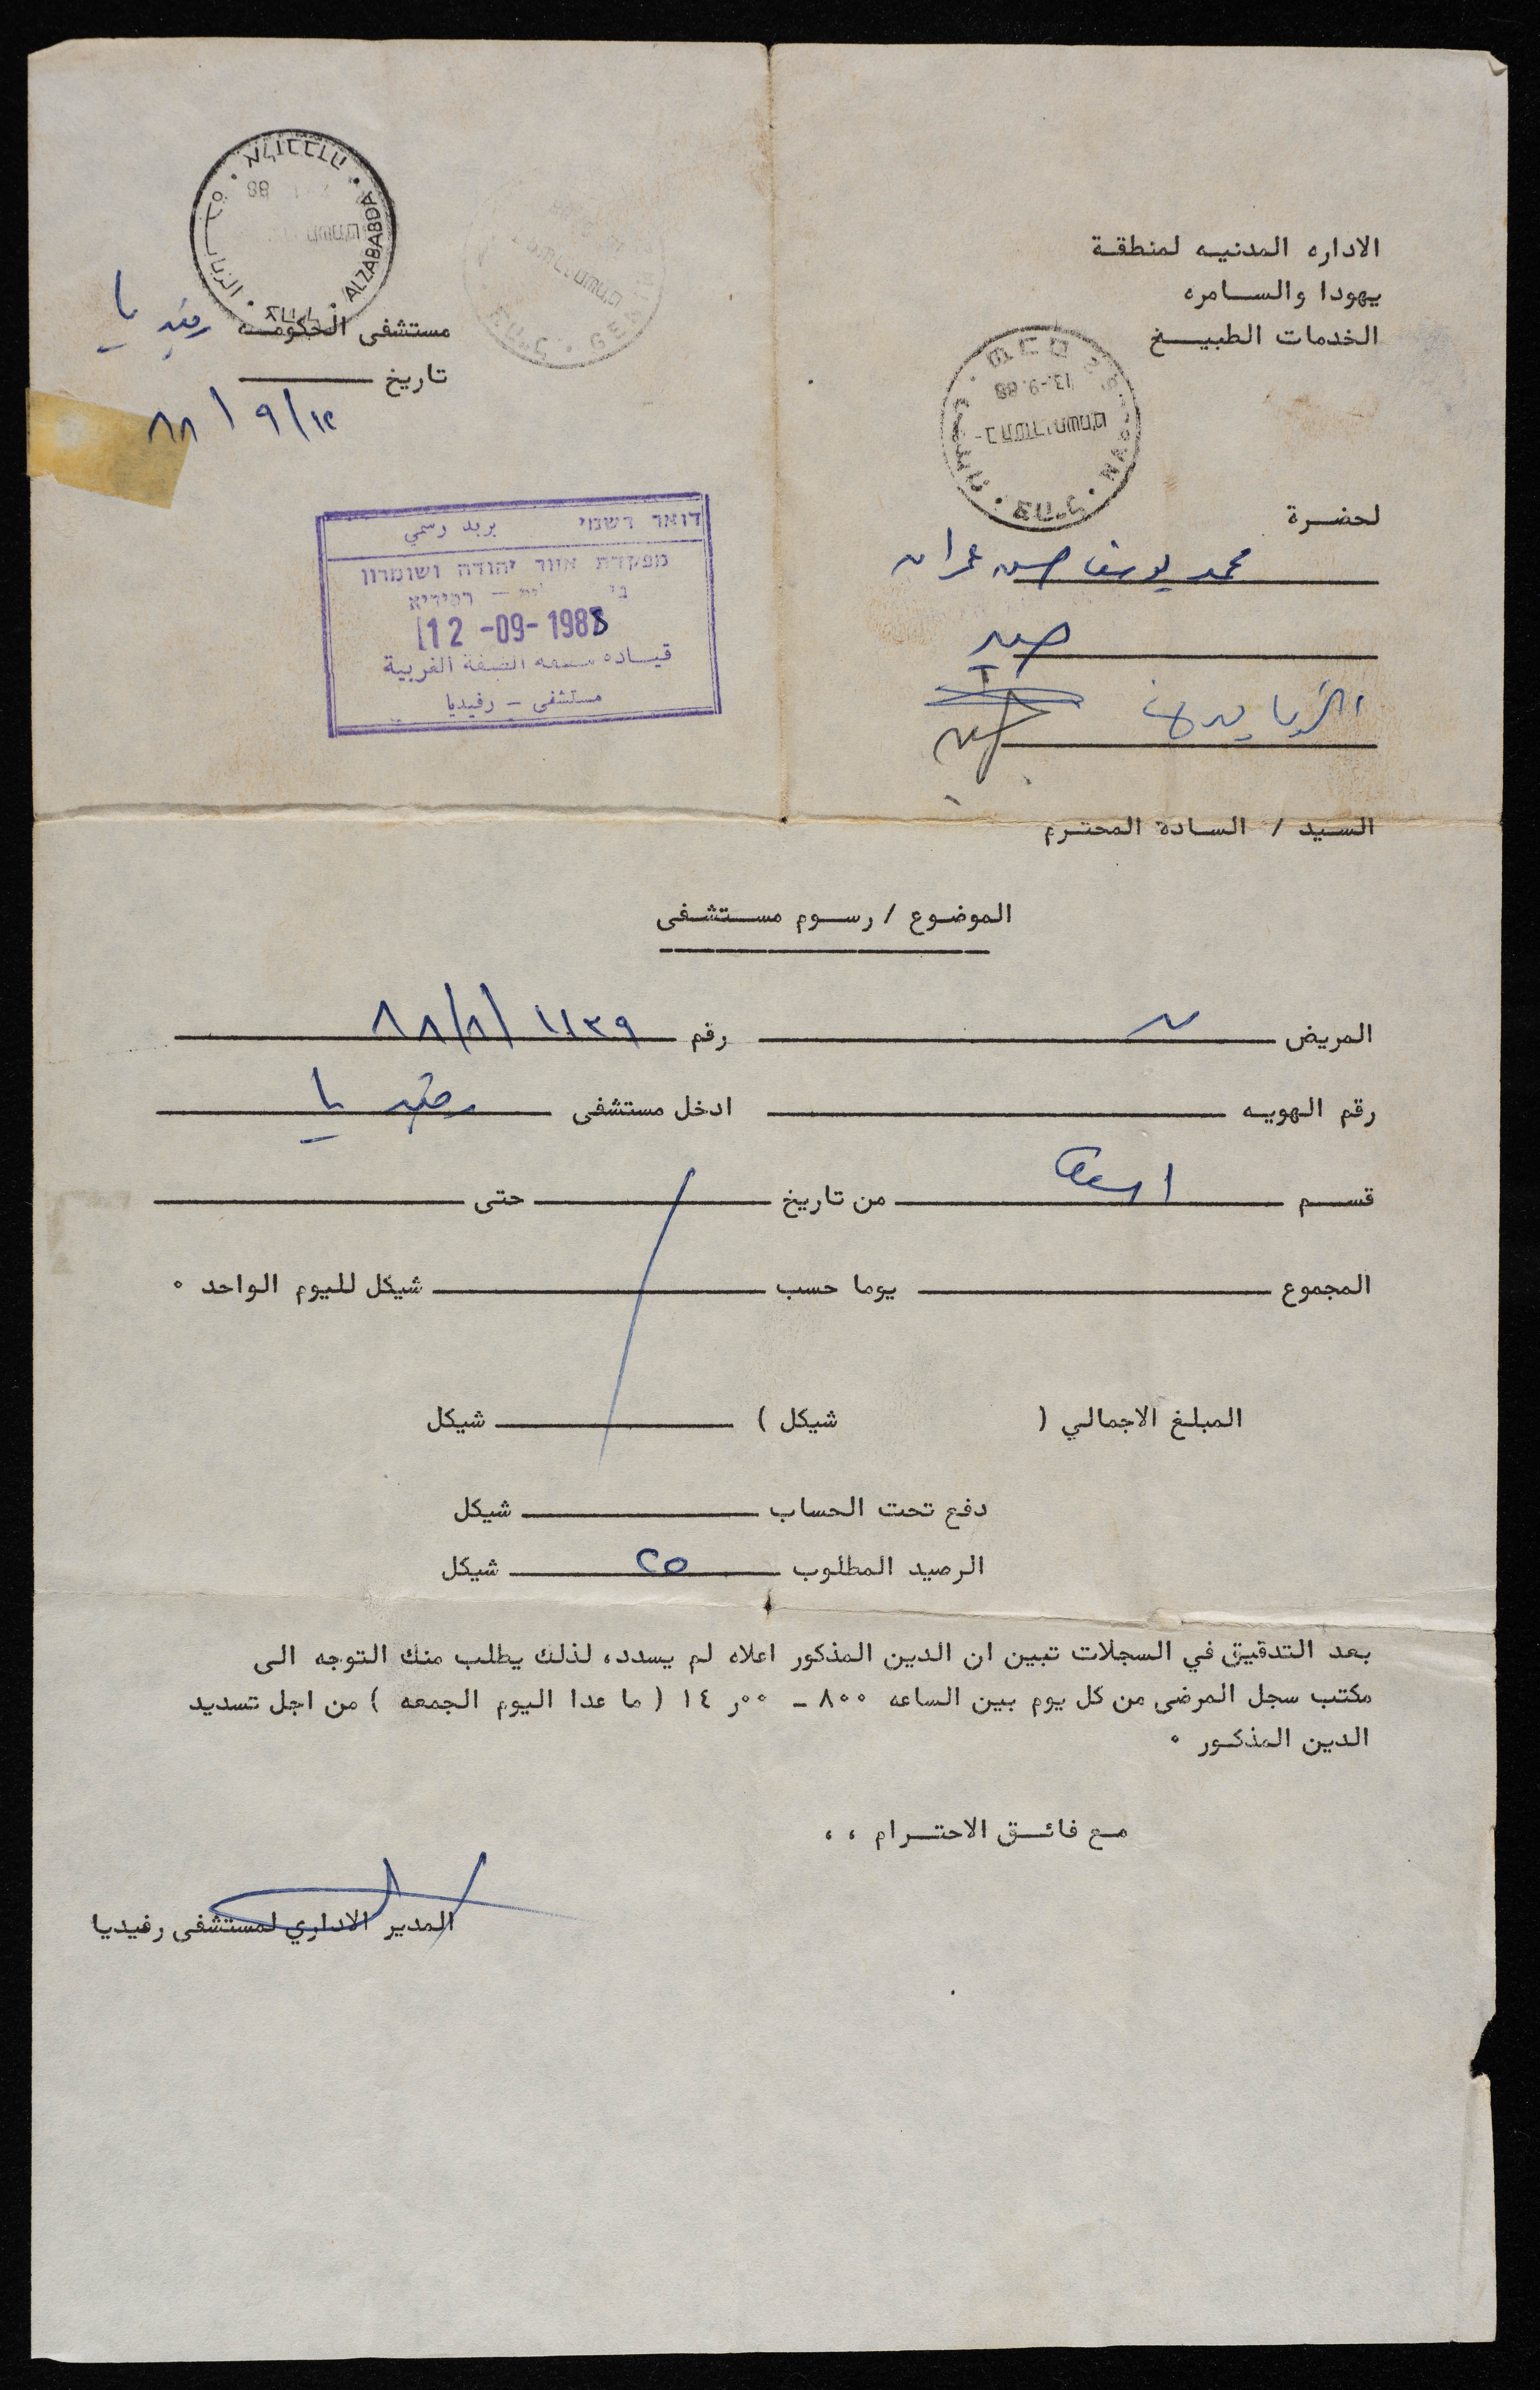 الاداره المدنيه لمنطقة
يهودا والسامره
الخدمات الطبيخ
مستشفى الحكومه رفيديا
تاريخ
١٢/٩/٨٨
אלזבבדה
الزبابده
ALZABABDA
13.-9.88
דואר רשמי بريد رسمي
מפקדת אזור יהודה ושומרון
רפידיא
12-09-1988
قياده الضفة الغربية
مستشفى - رفيديا
لحضرة
محمد يوسف حسن عمران
جنين
السيد / السادة المحترم
الموضوع / رسوم مستشفى
المريض رقم
رقم الهويه ادخل مستشفى رفيديا
قسم من تاريخ حتى
المجموع يوما حسب شيكل لليوم الواحد ٠
المبلغ الاجمالي ( شيكل ) شيكل
دفع تحت الحساب شيكل
الرصيد المطلوب ٢٥ شيكل
بعد التدقيق في السجلات تبين ان الدين المذكور اعلاه لم يسدد، لذلك يطلب منك التوجه الى
مكتب سجل المرضى من كل يوم بين الساعه ٨٠٠ - ٠٠ر ١٤ ( ما عدا اليوم الجمعه ) من اجل تسديد
الدين المذكور ٠
مع فائق الاحترام ،،
المدير الاداري لمستشفى رفيديا